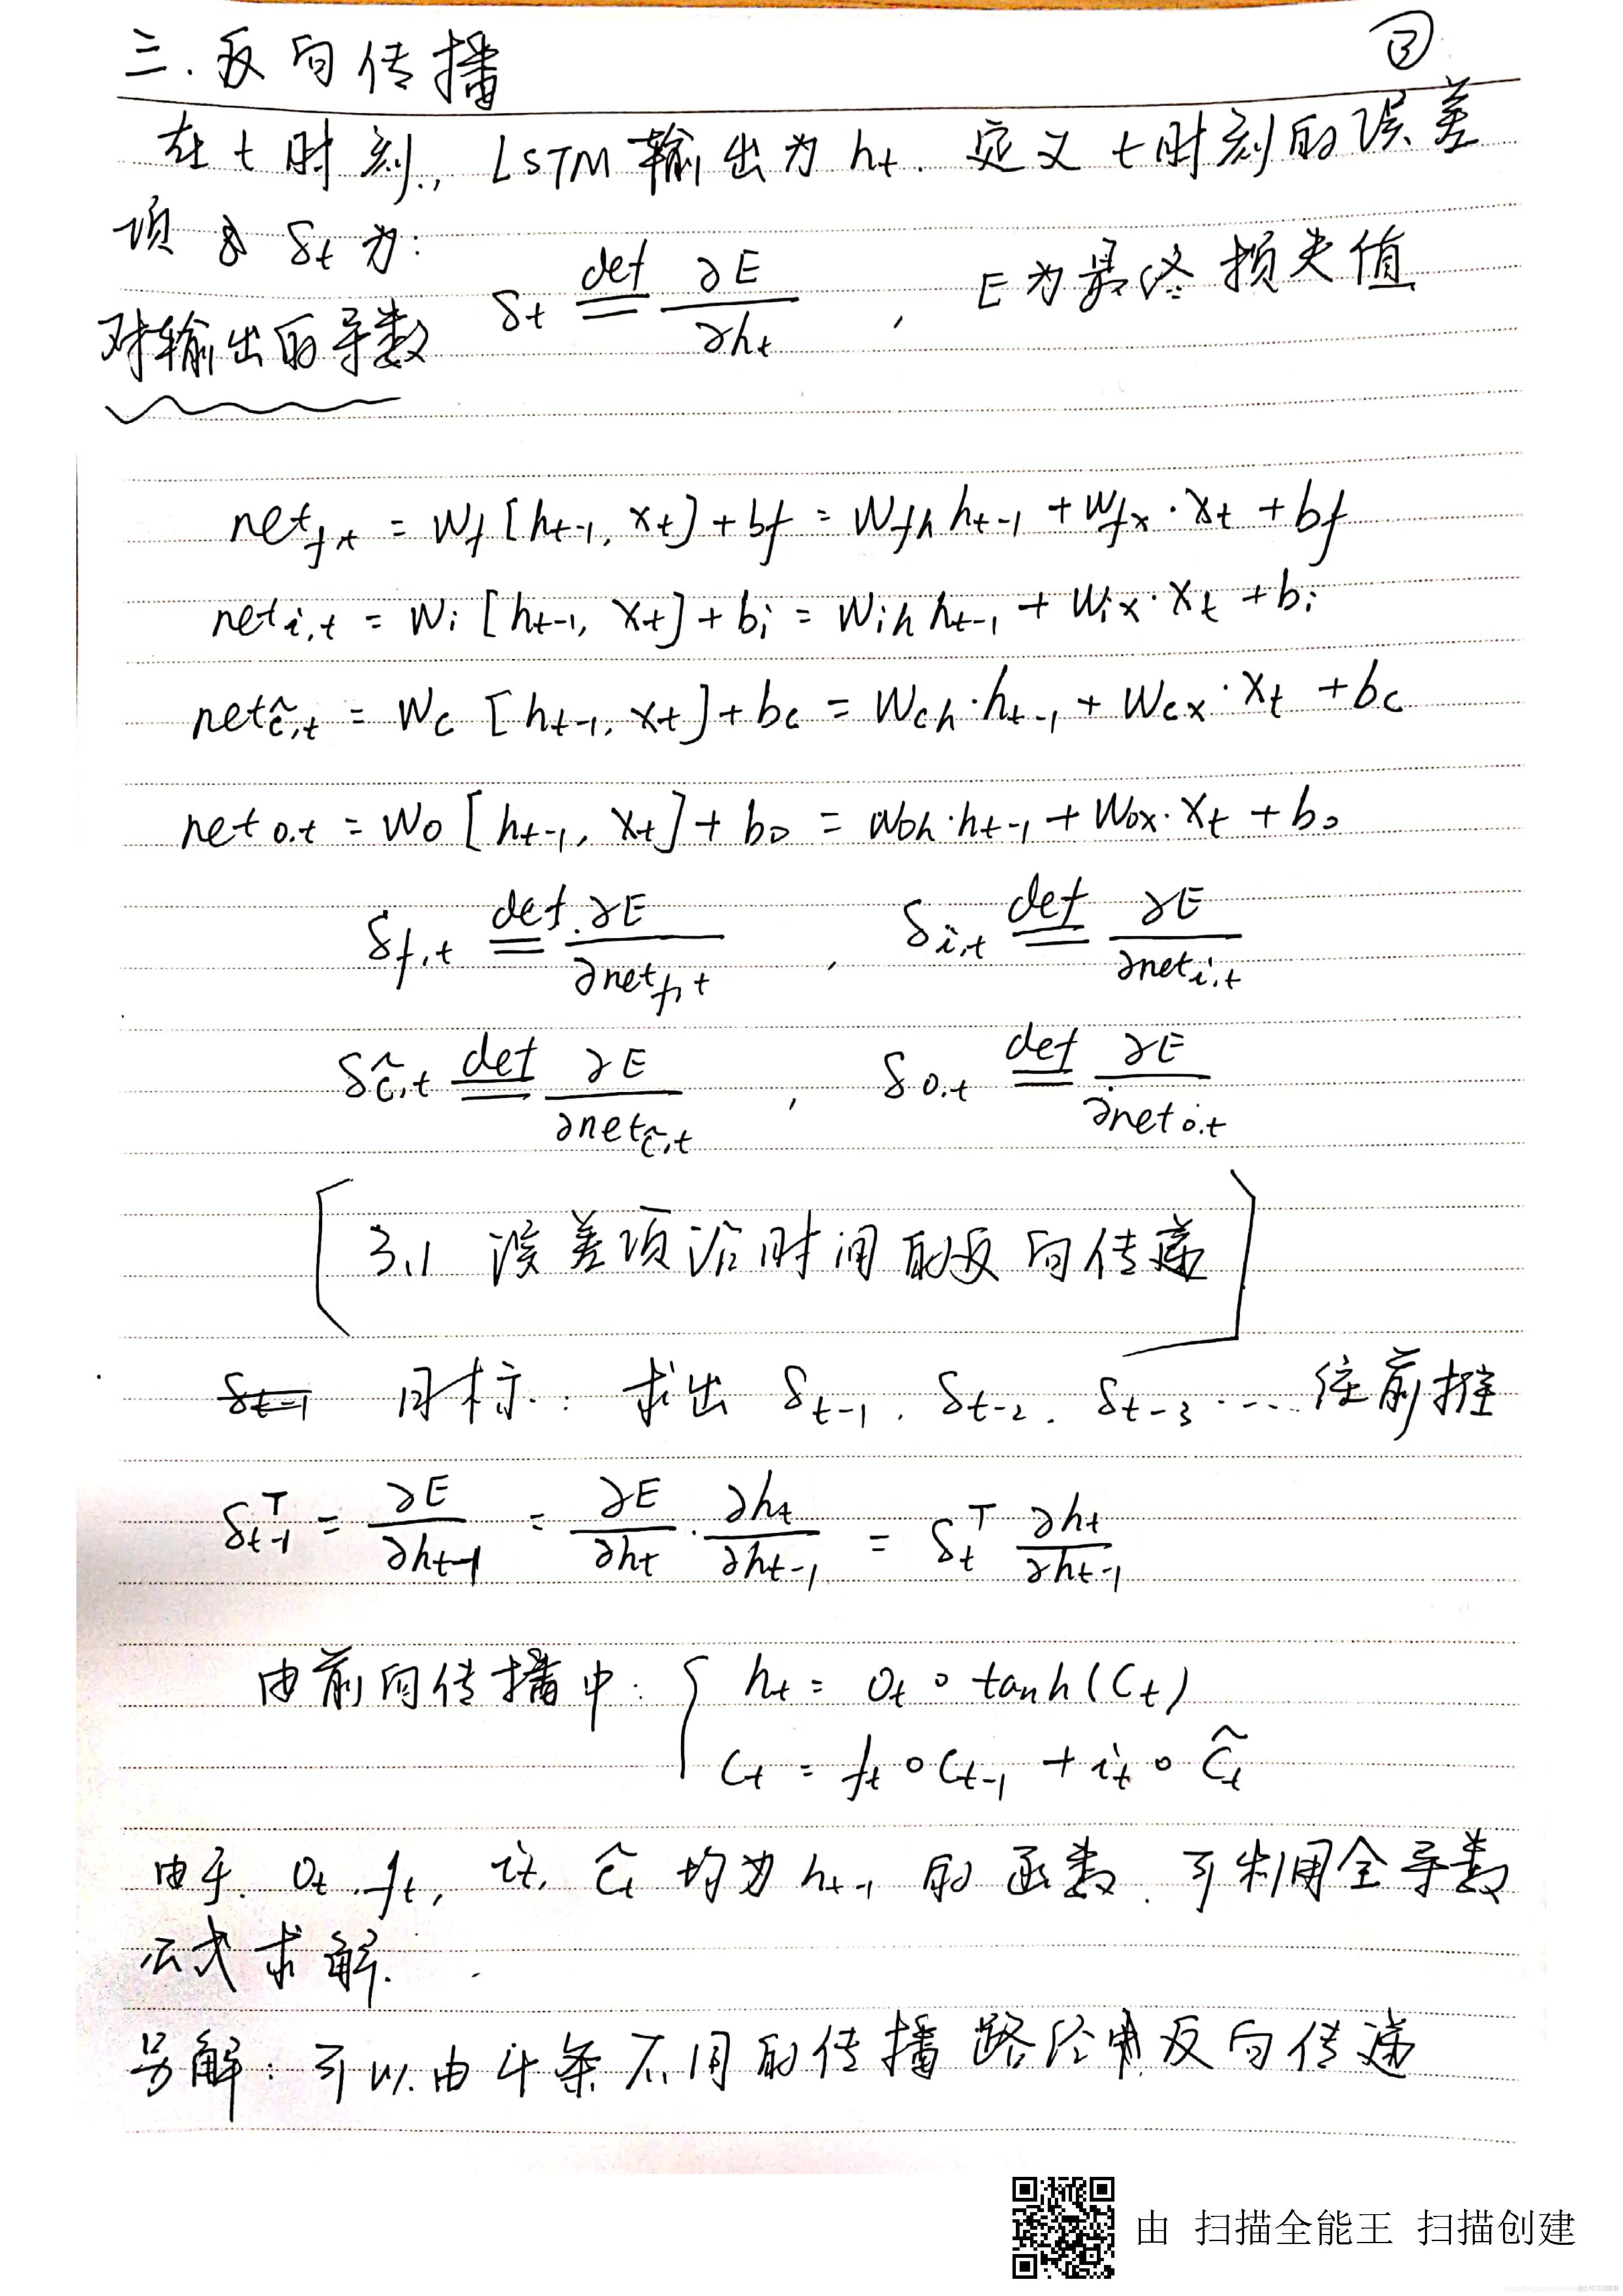 三.反向传播 ③
在t时刻, LSTM输出为 hₜ. 定义t时刻的误差
项 δₜ 为:
δₜ ≝ ∂E/∂hₜ , E为最终损失值
对输出的导数
net_f,t = W_f [h_t-1, x_t] + b_f = W_fh h_t-1 + W_fx · x_t + b_f
net_i,t = W_i [h_t-1, x_t] + b_i = W_ih h_t-1 + W_ix · x_t + b_i
net_c̃,t = W_c [h_t-1, x_t] + b_c = W_ch · h_t-1 + W_cx · x_t + b_c
net_o,t = W_o [h_t-1, x_t] + b_o = W_oh · h_t-1 + W_ox · x_t + b_o
δ_f,t ≝ ∂E/∂net_f,t , δ_i,t ≝ ∂E/∂net_i,t
δ_c̃,t ≝ ∂E/∂net_c̃,t , δ_o,t ≝ ∂E/∂net_o,t
[3.1 误差项沿时间的反向传递]
目标: 求出 δ_t-1, δ_t-2, δ_t-3 .... 往前推
δ_t-1^T = ∂E/∂h_t-1 = ∂E/∂h_t · ∂h_t/∂h_t-1 = δ_t^T ∂h_t/∂h_t-1
由前向传播中: { h_t = o_t ∘ tanh(C_t)
C_t = f_t ∘ C_t-1 + i_t ∘ C̃_t
由于. o_t, f_t, i_t, C̃_t 均为 h_t-1 的函数, 可利用全导数
公式求解.
另解: 可以由4条不同的传播路径 反向传递
由 扫描全能王 扫描创建
@51CTO博客